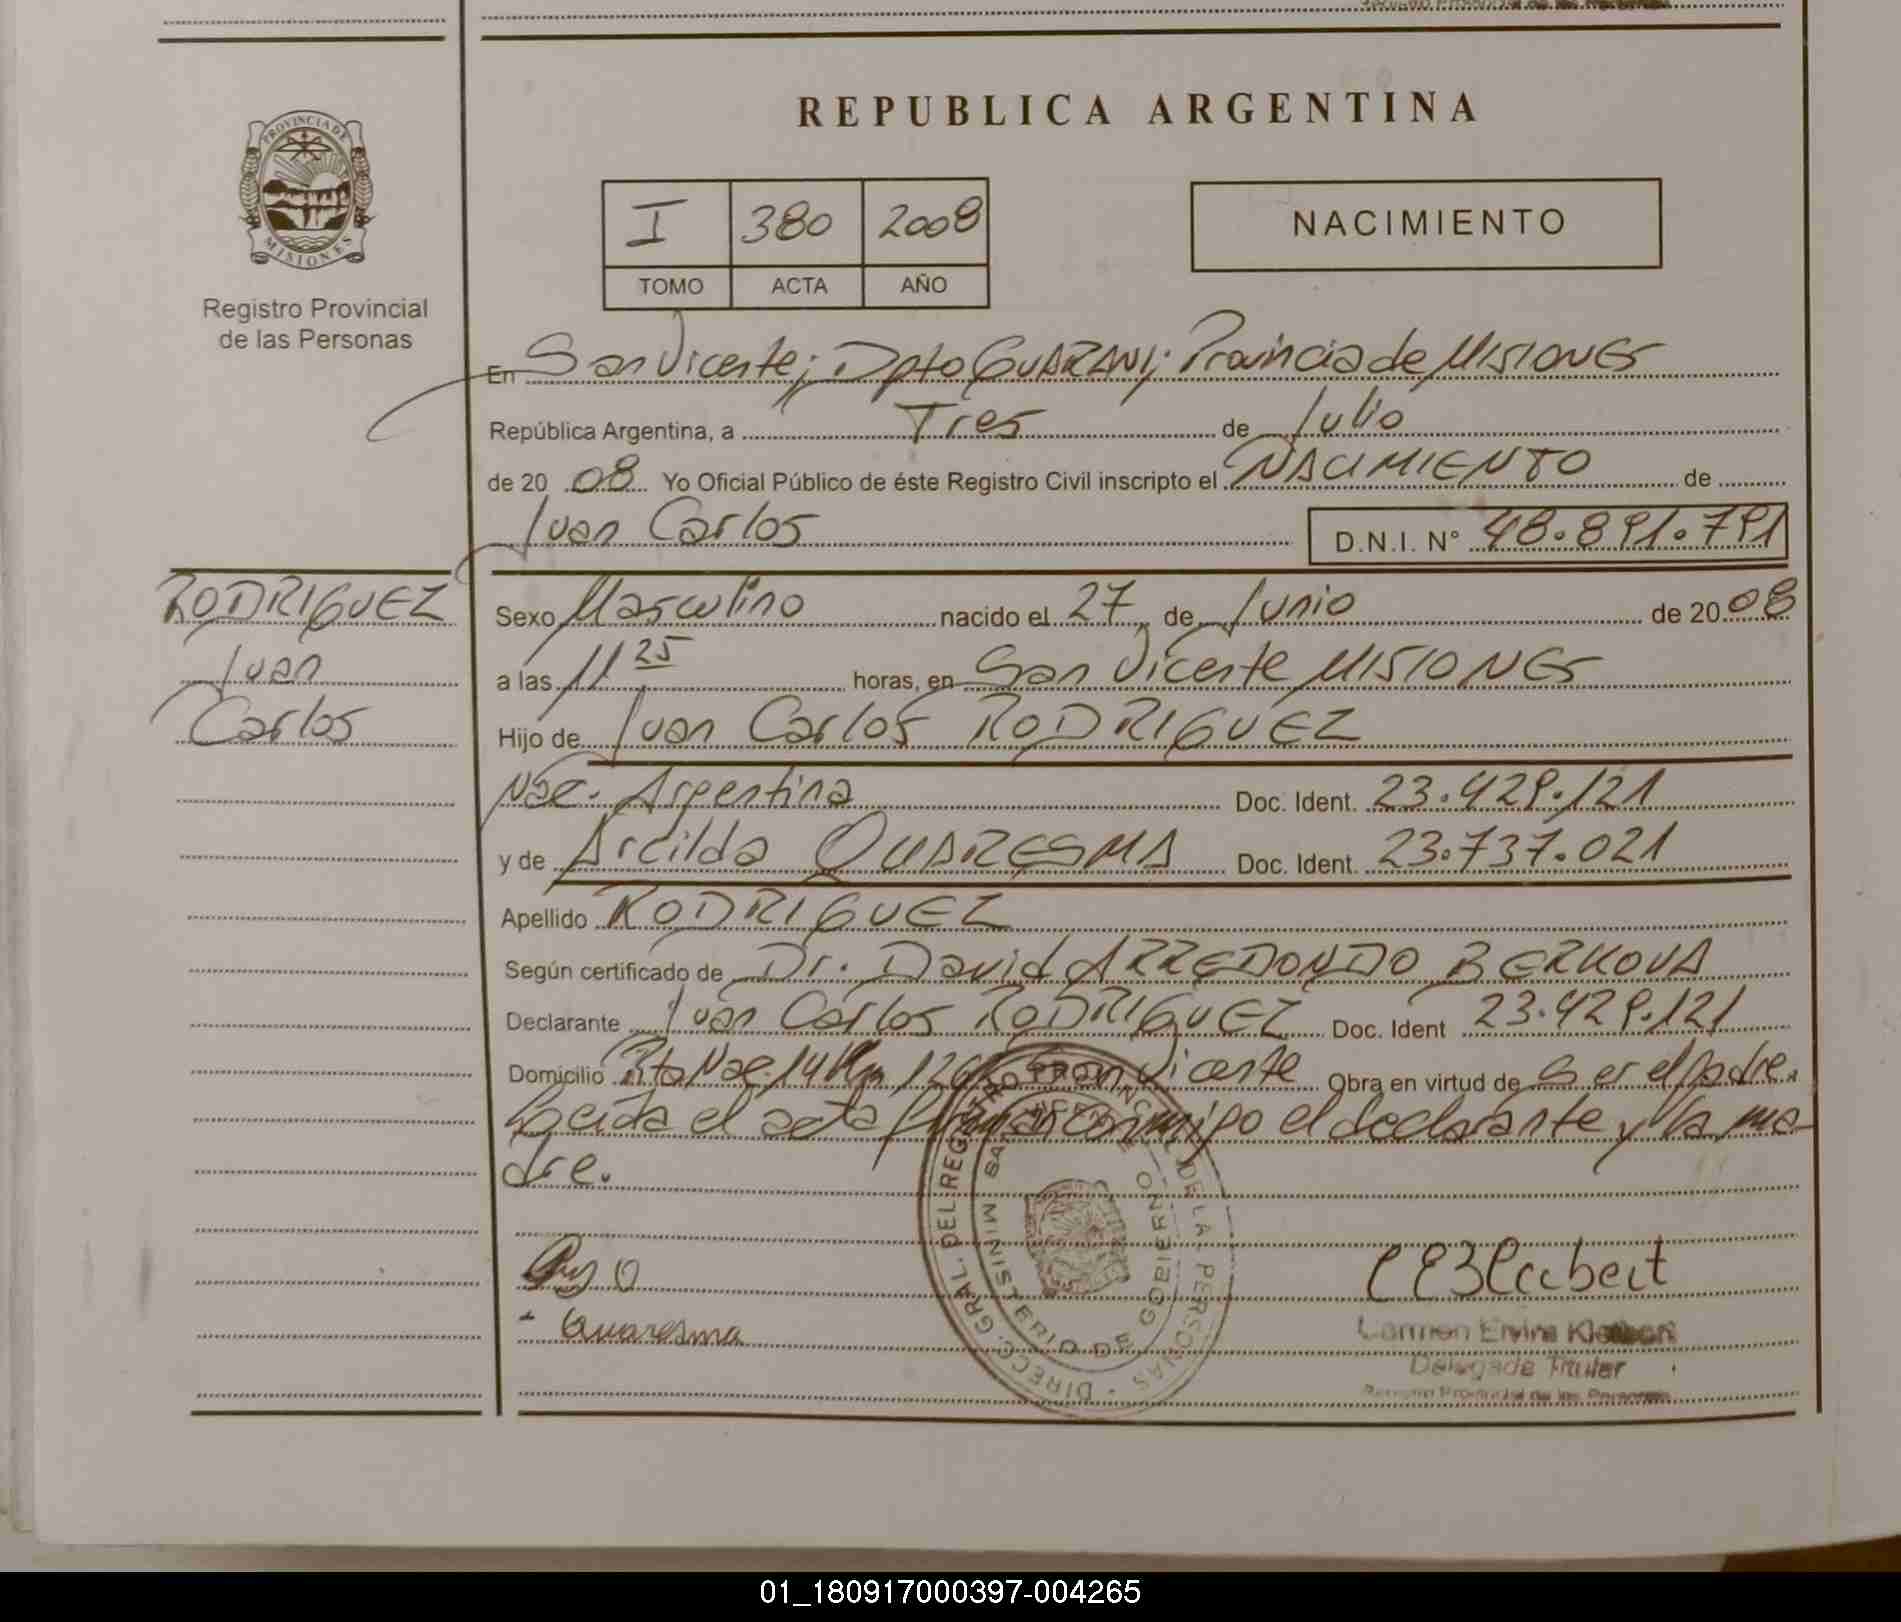 REPUBLICA ARGENTINA
PROVINCIA DE
MISIONES
Registro Provincial
de las Personas
I 380 2008
TOMO ACTA AÑO
NACIMIENTO
En San Vicente; Dpto GUARANI; Provincia de MISIONES
República Argentina, a Tres de Julio
de 20 08 Yo Oficial Público de éste Registro Civil inscripto el NACIMIENTO de
Juan Carlos D.N.I. N° 48.891.791
RODRIGUEZ
Juan
Carlos
Sexo Masculino nacido el 27 de Junio de 20 08
a las 11 25 horas, en San Vicente MISIONES
Hijo de Juan Carlos RODRIGUEZ
Nac. Argentina Doc. Ident. 23.429.121
y de Arcilda QUARESMA Doc. Ident. 23.737.021
Apellido RODRIGUEZ
Según certificado de Dr. David ARREDONDO BERKOVA
Declarante Juan Carlos RODRIGUEZ Doc. Ident 23.429.121
Domicilio Rta Nac. 14 Km Vicente Obra en virtud de ser el padre.
el acta firman conmigo el declarante y la ma-
dre.
Quaresma
DIRECC. GRAL. DEL REGISTRO PROVINCIAL DE LA PERSONAS
MINISTERIO DE GOBIERNO
Carmen Elvira
Delegada Titular
Registro Provincial de las Personas
01_180917000397-004265